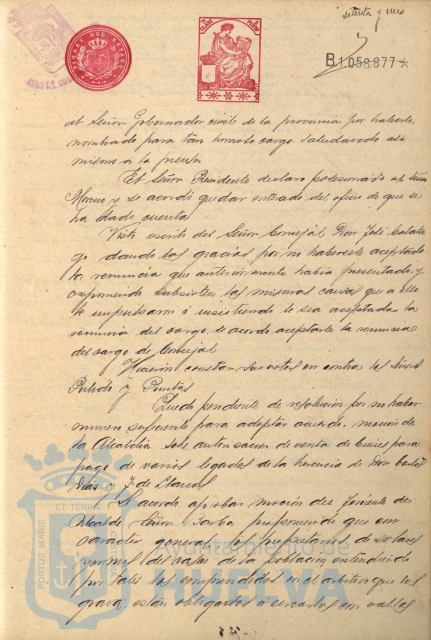 setenta y uno
B.1.058.877*
al Señor Gobernador civil de la provincia por haberle
nombrado para tan honroso cargo saludando asi
mismo a la prensa
El Señor Presidente declaro posesionado al Señor
Moreno y se acordó quedar enterado del oficio de que se
ha dado cuenta
Visto escrito del Señor Concejal, Don José
go dando las gracias por no haberle aceptado
la renuncia que anteriormente habia presentado y
exponiendo subsisten las mismas causas que a ello
le impulsaron e insistiendo le sea aceptada la
renuncia del cargo, se acordo aceptarle la renuncia
del cargo de Concejal
Hacen constar sus votos en contra los Señores
Pulido y
Queda pendiente de resolución por no haber
numero suficiente para adoptar acuerdo, mocion de
la Alcaldia sobre autorizacion de venta de bienes para
pago de varios legados de la herencia de Don
y J. de
Se acordo aprobar mocion del Teniente de
Alcalde Señor Barba proponiendo que con
caracter general los propietarios de solares
del casco de la poblacion entendiendo
por tales los comprendidos en el arbitrio que los
grava, estan obligados a cercarlos con vallas
PORTUS MARIS ET TERRAE
Ayuntamiento de
HUELVA